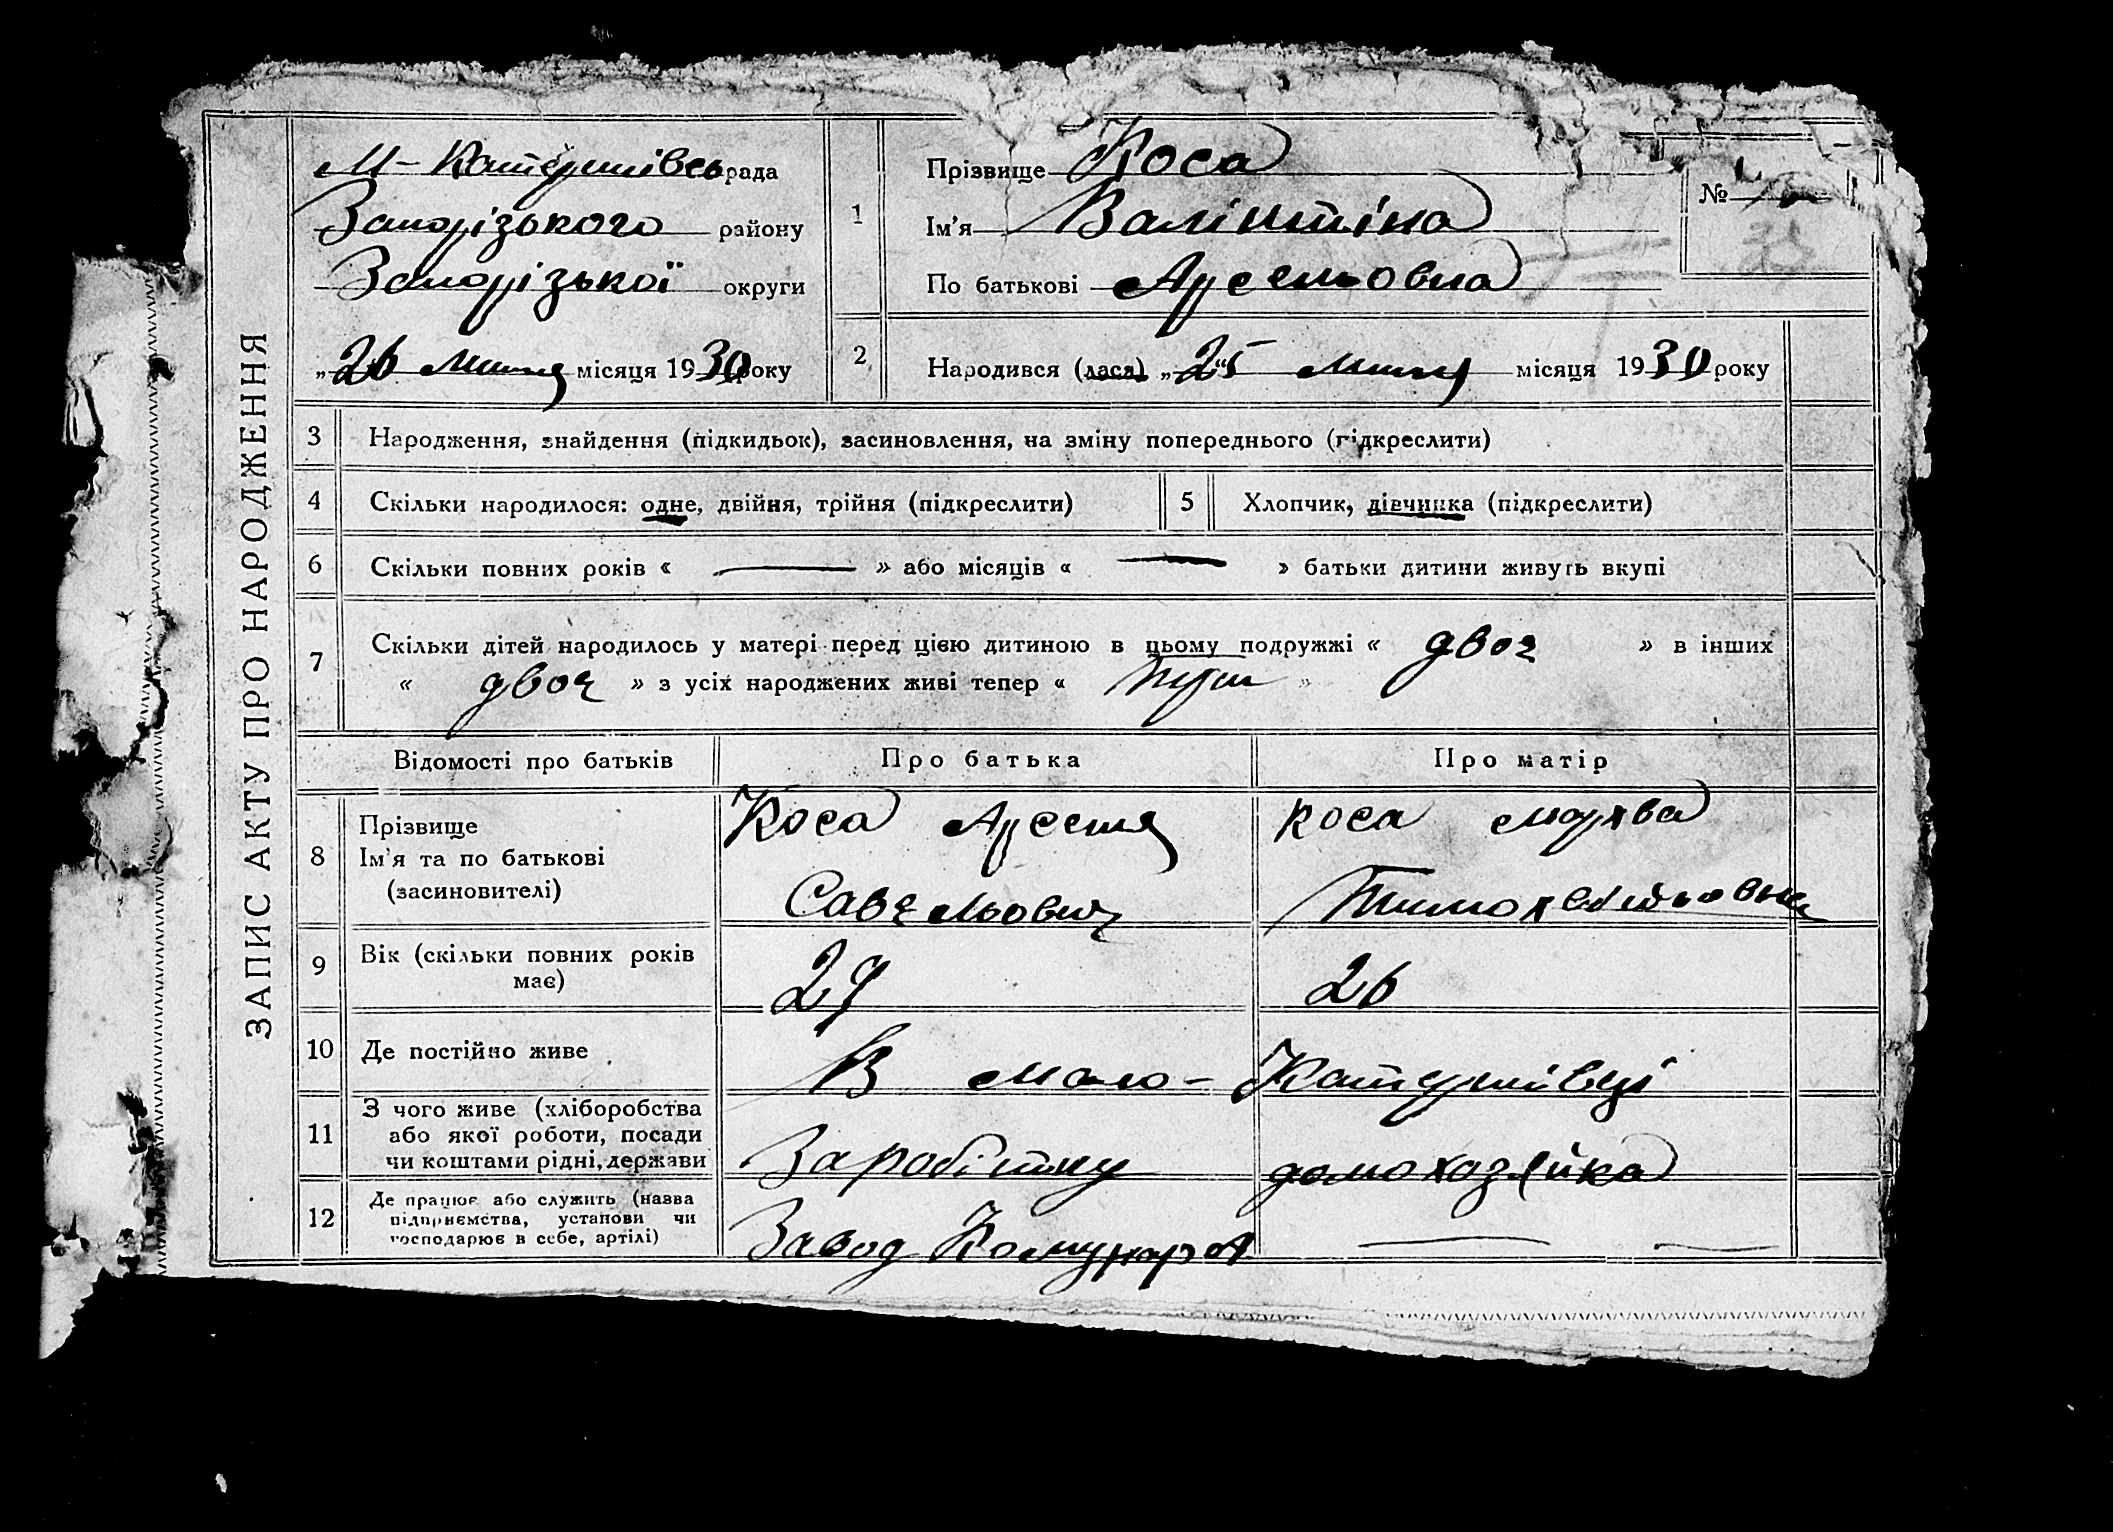 ЗАПИС АКТУ ПРО НАРОДЖЕННЯ
М-Катеринівсь рада
Запорізького району
Запорізької округи
„26 липня місяця 1930 року
1
Прізвище Коса
Ім’я Валінтіна
По батькові Арсеньовна
№
35
2
Народився (лася) „25 липня місяця 1930 року
3 Народження, знайдення (підкидьок), засиновлення, на зміну попереднього (підкреслити)
4 Скільки народилося: одне, двійня, трійня (підкреслити)
5 Хлопчик, дівчинка (підкреслити)
6 Скільки повних років « — » або місяців « — » батьки дитини живуть вкупі
7 Скільки дітей народилось у матері перед цією дитиною в цьому подружжі « двоє » в інших
« двоє » з усіх народжених живі тепер « »
Відомості про батьків Про батька Про матір
8 Прізвище
Ім’я та по батькові
(засиновителі)
Коса Арсентій
Савельович
Коса
9 Вік (скільки повних років
має)
27 26
10 Де постійно живе В Мало-Катеринівці
11 З чого живе (хліборобства
або якої роботи, посади
чи коштами рідні, держави
Заробітку домохозяйка
12 Де працює або служить (назва
підприємства, установи чи
господарює в себе, артілі)
Завод Комунар — —